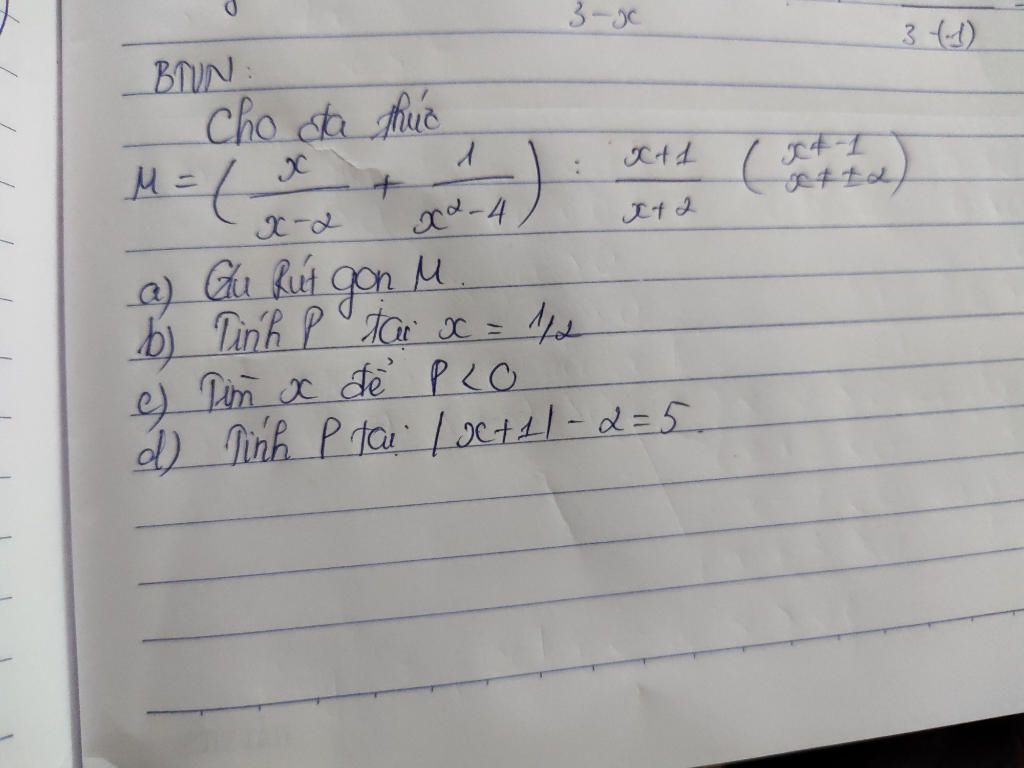 3-x
3-(-1)
BTVN:
Cho đa thức
M = ( x/(x-2) + 1/(x²-4) ) : (x+1)/(x+2) ( x≠-1 x≠±2 )
a) Rút gọn M.
b) Tính P tại x = 1/2
c) Tìm x để P<0
d) Tính P tại |x+1| - 2 = 5.